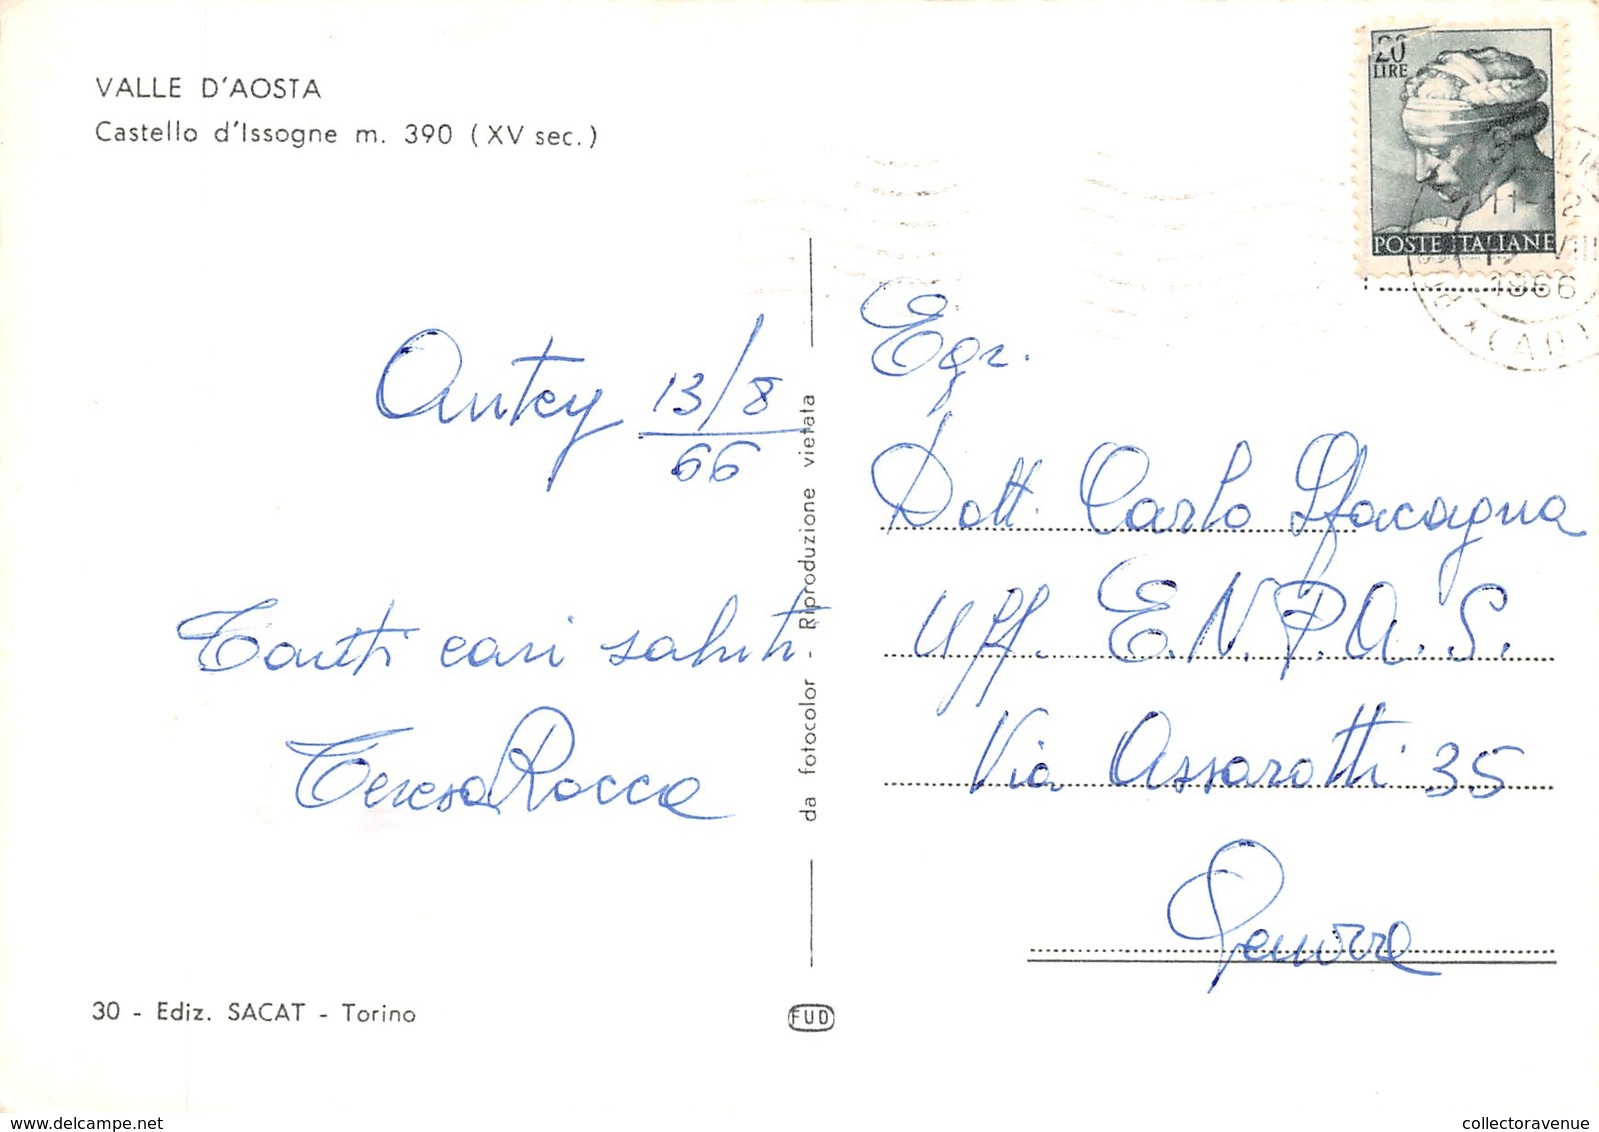 VALLE D'AOSTA
Castello d'Issogne m. 390 (XV sec.)
20
LIRE
POSTE ITALIANE
11-12
VIII
1966
(AO)
Antey 13/8
66
Tanti cari saluti
Teresa Rocca
da fotocolor - Riproduzione vietata
Egr.
Dott. Carlo Sfacagna
Uff. E.N.P.A.S.
Via Assarotti 35
Genova
30 - Ediz. SACAT - Torino
FUD
delcampe.net
collectoravenue